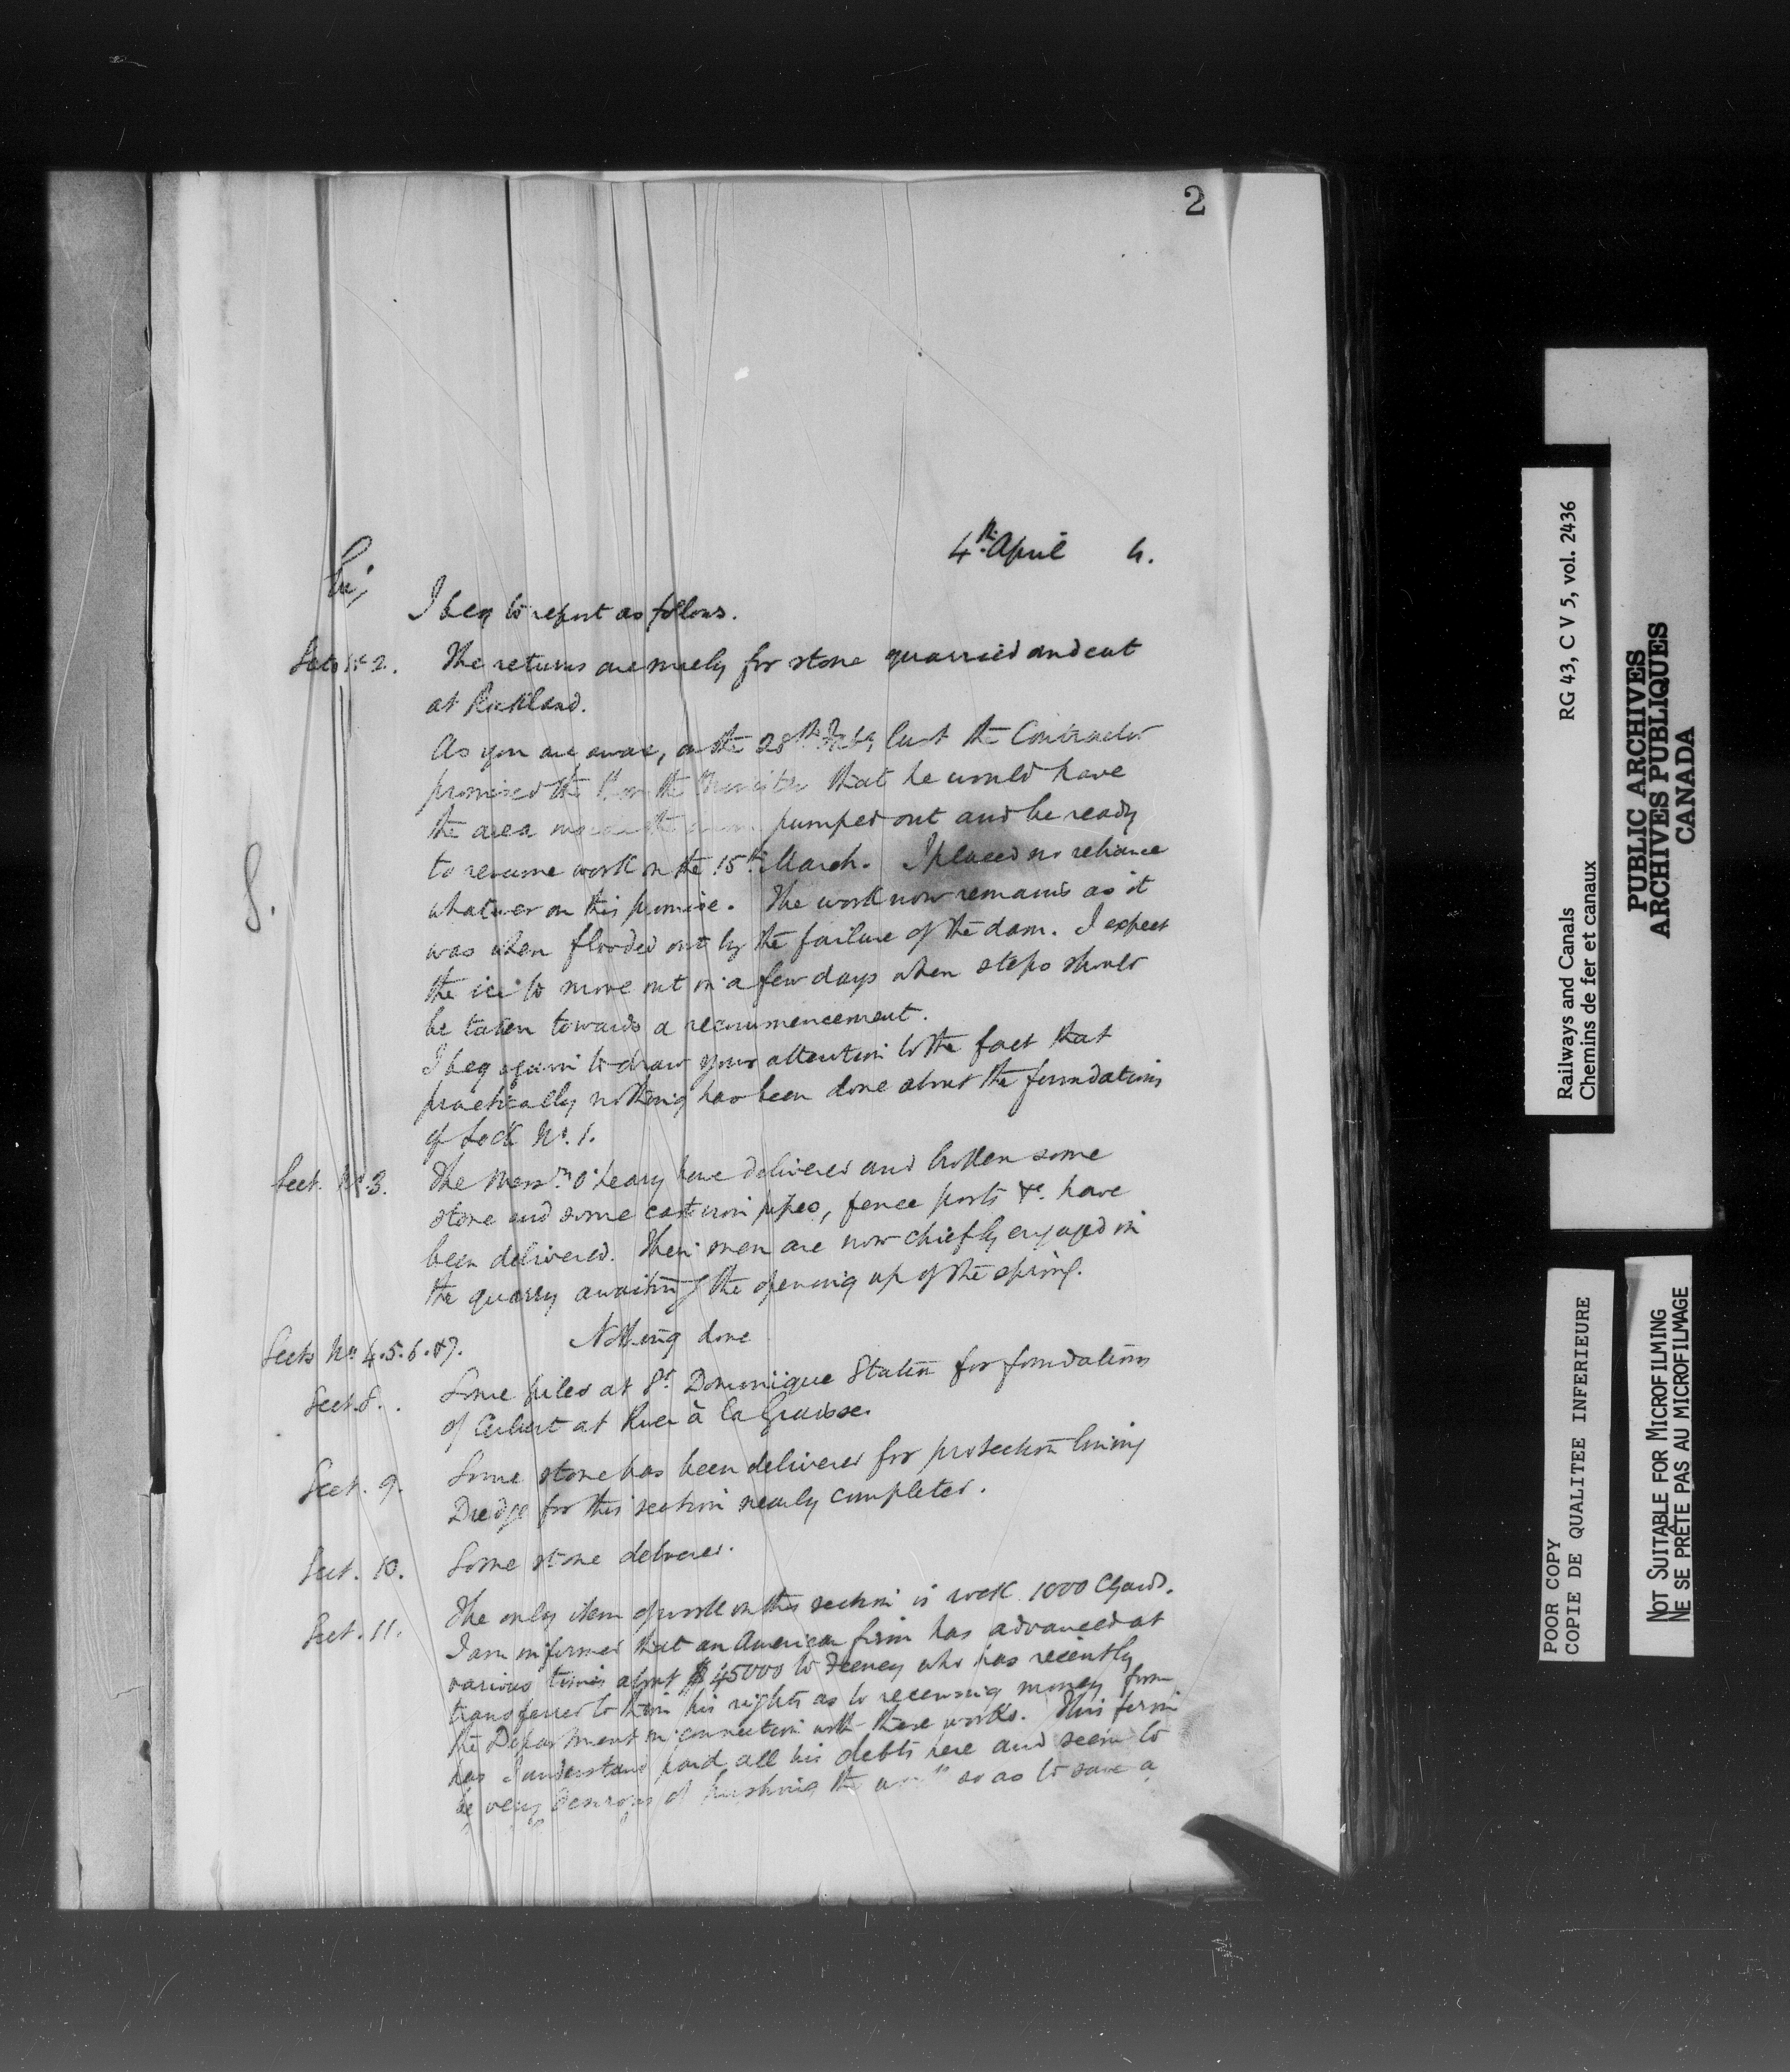 2
4th April 4.
Sir,
I beg to report as follows.
Sects 1 & 2. The returns are merely for stone quarried and cut
at Rockland.
As you are aware, on the 28th Feby last the Contractor
promised the Hon the Minister that he would have
the area pumped out and be ready
to resume work on the 15th March. I placed no reliance
whatever on this promise. The work now remains as it
was when flooded out by the failure of the dam. I expect
the ice to move out in a few days when steps should
be taken towards a recommencement.
I beg again to draw your attention to the fact that
practically nothing has been done about the foundations
of Lock No. 1.
Sect. No. 3. The Messrs O'Leary have delivered and broken some
stone and some cast iron pipes, fence posts &c. have
been delivered. Their men are now chiefly engaged in
the quarry awaiting the opening up of the spring.
Sects Nos 4.5.6.&7. Nothing done
Sect. 8. Some piles at St. Dominique Station for foundations
of Culvert at River à la Graisse.
Sect. 9. Some stone has been delivered for protection lining
Dredge for this section nearly completed.
Sect. 10. Some stone delivered.
Sect. 11. The only item of work on this section is rock 1000 C Yards.
I am informed that an American firm has advanced at
various times about $45000 to Feeney who has recently
transferred to them his rights as to receiving money from
the Department in connection with these works. This firm
has I understand paid all his debts here and seem to
be very desirous of pushing the work so as to save a
S.
Railways and Canals RG 43, C V 5, vol. 2436
Chemins de fer et canaux
PUBLIC ARCHIVES
ARCHIVES PUBLIQUES
CANADA
POOR COPY
COPIE DE QUALITEE INFERIEURE
NOT SUITABLE FOR MICROFILMING
NE SE PRÊTE PAS AU MICROFILMAGE